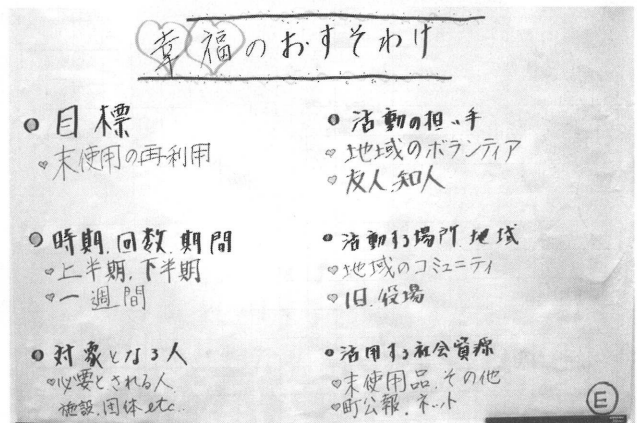 幸福のおすそわけ
目標
末使用の再利用
時期、回数、期間
上半期、下半期
一週間
対象となる人
必要とされる人
施設、団体etc..
活動の担い手
地域のボランティア
友人、知人
活動する場所、地域
地域のコミュニティ
旧、役場
活用する社会資源
末使用品、その他
町公報、ネット
E